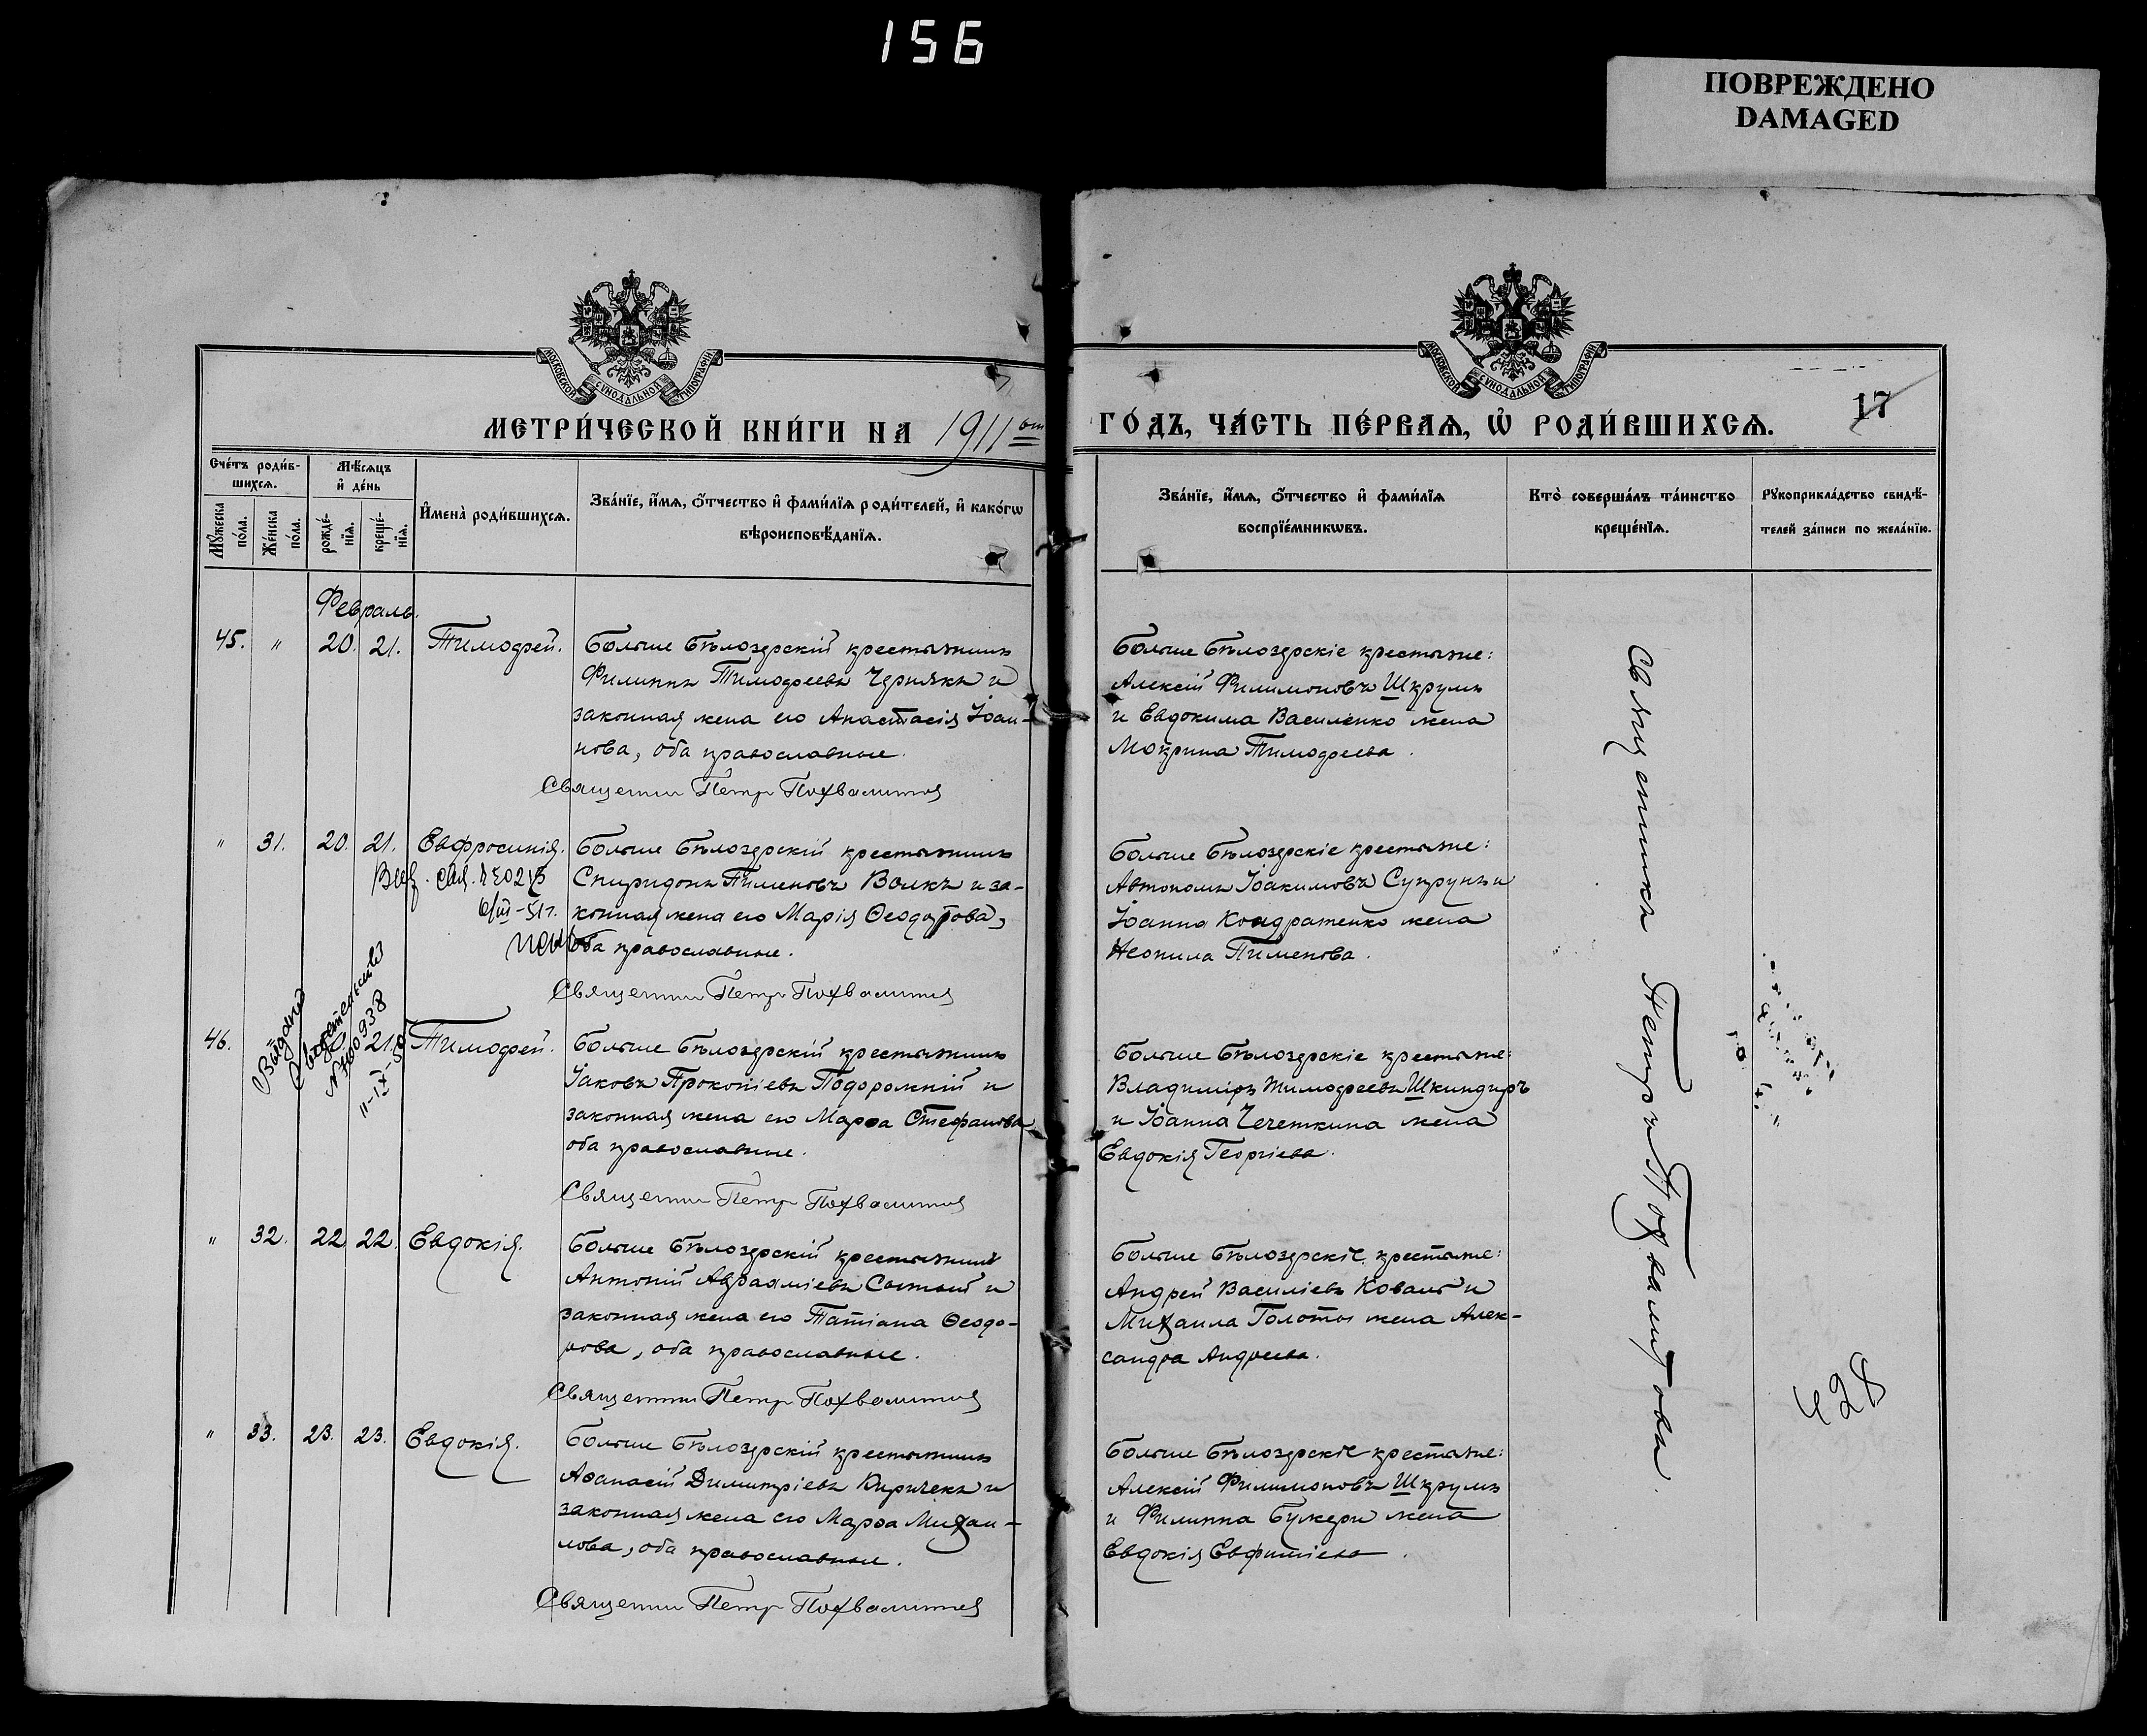 156
ПОВРЕЖДЕНО
DAMAGED
МОСКОВСКОЙ СѴНОДАЛЬНОЙ ТИПОГРАФІИ
МОСКОВСКОЙ СѴНОДАЛЬНОЙ ТИПОГРАФІИ
МЕТРИ́ЧЕСКОЙ КНИ́ГИ НА 1911 ый
ГО́ДЪ, ЧА́СТЬ ПЕ́РВАѦ, Ѡ҆ РОДИ́ВШИХСѦ.
17
Сче́тъ роди́в-
шихсѧ.
Мꙋ́жеска
по́ла.
Же́нска
по́ла.
Мѣ́сѧцъ
и҆ де́нь
рожде́-
нїѧ.
креще́-
нїѧ.
И҆мена̀ роди́вшихсѧ.
Зва́нїе, и҆́мѧ, ѻ҆́тчество и҆ фами́лїѧ роди́телей, и҆ како́гѡ
вѣроисповѣ́данїѧ.
Зва́нїе, и҆́мѧ, ѻ҆́тчество и҆ фами́лїѧ
воспрїе́мникѡвъ.
Кто̀ соверша́лъ та́инство
креще́нїѧ.
Рꙋкоприкла́дство свидѣ́-
телей за́писи по жела́нїю.
Февраль.
45. " 20. 21. Тимофей.
Больше Бѣлозерскій крестьянинъ
Филиппъ Тимофеевъ Чернякъ и
законная жена его Анастасія Іоан-
нова, оба православные.
Священник Петр Похвалитов
Больше Бѣлозерскіе крестьяне:
Алексій Филимоновъ Шкрумъ
и Евдокима Василенко жена
Мокрина Тимофеева.
" 31. 20. 21. Евфросинія.
6/III-51г.
Больше Бѣлозерскій крестьянинъ
Спиридонъ Пименовъ Волкъ и за-
конная жена его Марія Ѳеодорова,
оба православные.
Священник Петр Похвалитов
Больше Бѣлозерскіе крестьяне:
Автономъ Іоакимовъ Супрунъ и
Іоанна Кондратенко жена
Неонила Пименова.
46. " 21. Тимофей.
Выдано
свидетельство
11-IX-50
Больше Бѣлозерскій крестьянинъ
Іаковъ Прокопіевъ Подорожній и
законная жена его Марѳа Стефанова
оба православные.
Священник Петр Похвалитов
Больше Бѣлозерскіе крестьяне:
Владиміръ Тимофеевъ Шкиндиръ
и Іоанна Чечеткина жена
Евдокія Георгіева.
" 32. 22. 22. Евдокія.
Больше Бѣлозерскій крестьянинъ
Антоній Аврааміевъ Сытый и
законная жена его Татіана Ѳеодо-
рова, оба православные.
Священник Петр Похвалитов
Больше Бѣлозерскіе крестьяне:
Андрей Василіевъ Коваль и
Михаила Голоты жена Алек-
сандра Андреева.
" 33. 23. 23. Евдокія.
Больше Бѣлозерскій крестьянинъ
Аѳанасій Димитріевъ Киричекъ и
законная жена его Марѳа Михаи-
лова, оба православные.
Священник Петр Похвалитов
Больше Бѣлозерскіе крестьяне:
Алексій Филимоновъ Шкрумъ
и Филиппа Бужери жена
Евдокія Евфиміева.
Священникъ Петръ Похвалитовъ.
428